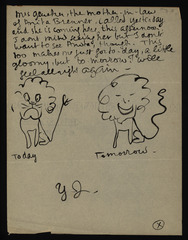 Mrs Genther, the mother-in-law
of Anita Brenner, called yesterday
and she is coming here this afternoon
I dont mind seeing her but I dont
want to see Anita, though. This
too makes me just for to-day, a little
gloomy, but to-morrow I will
feel all right again —
Today
Tomorrow.